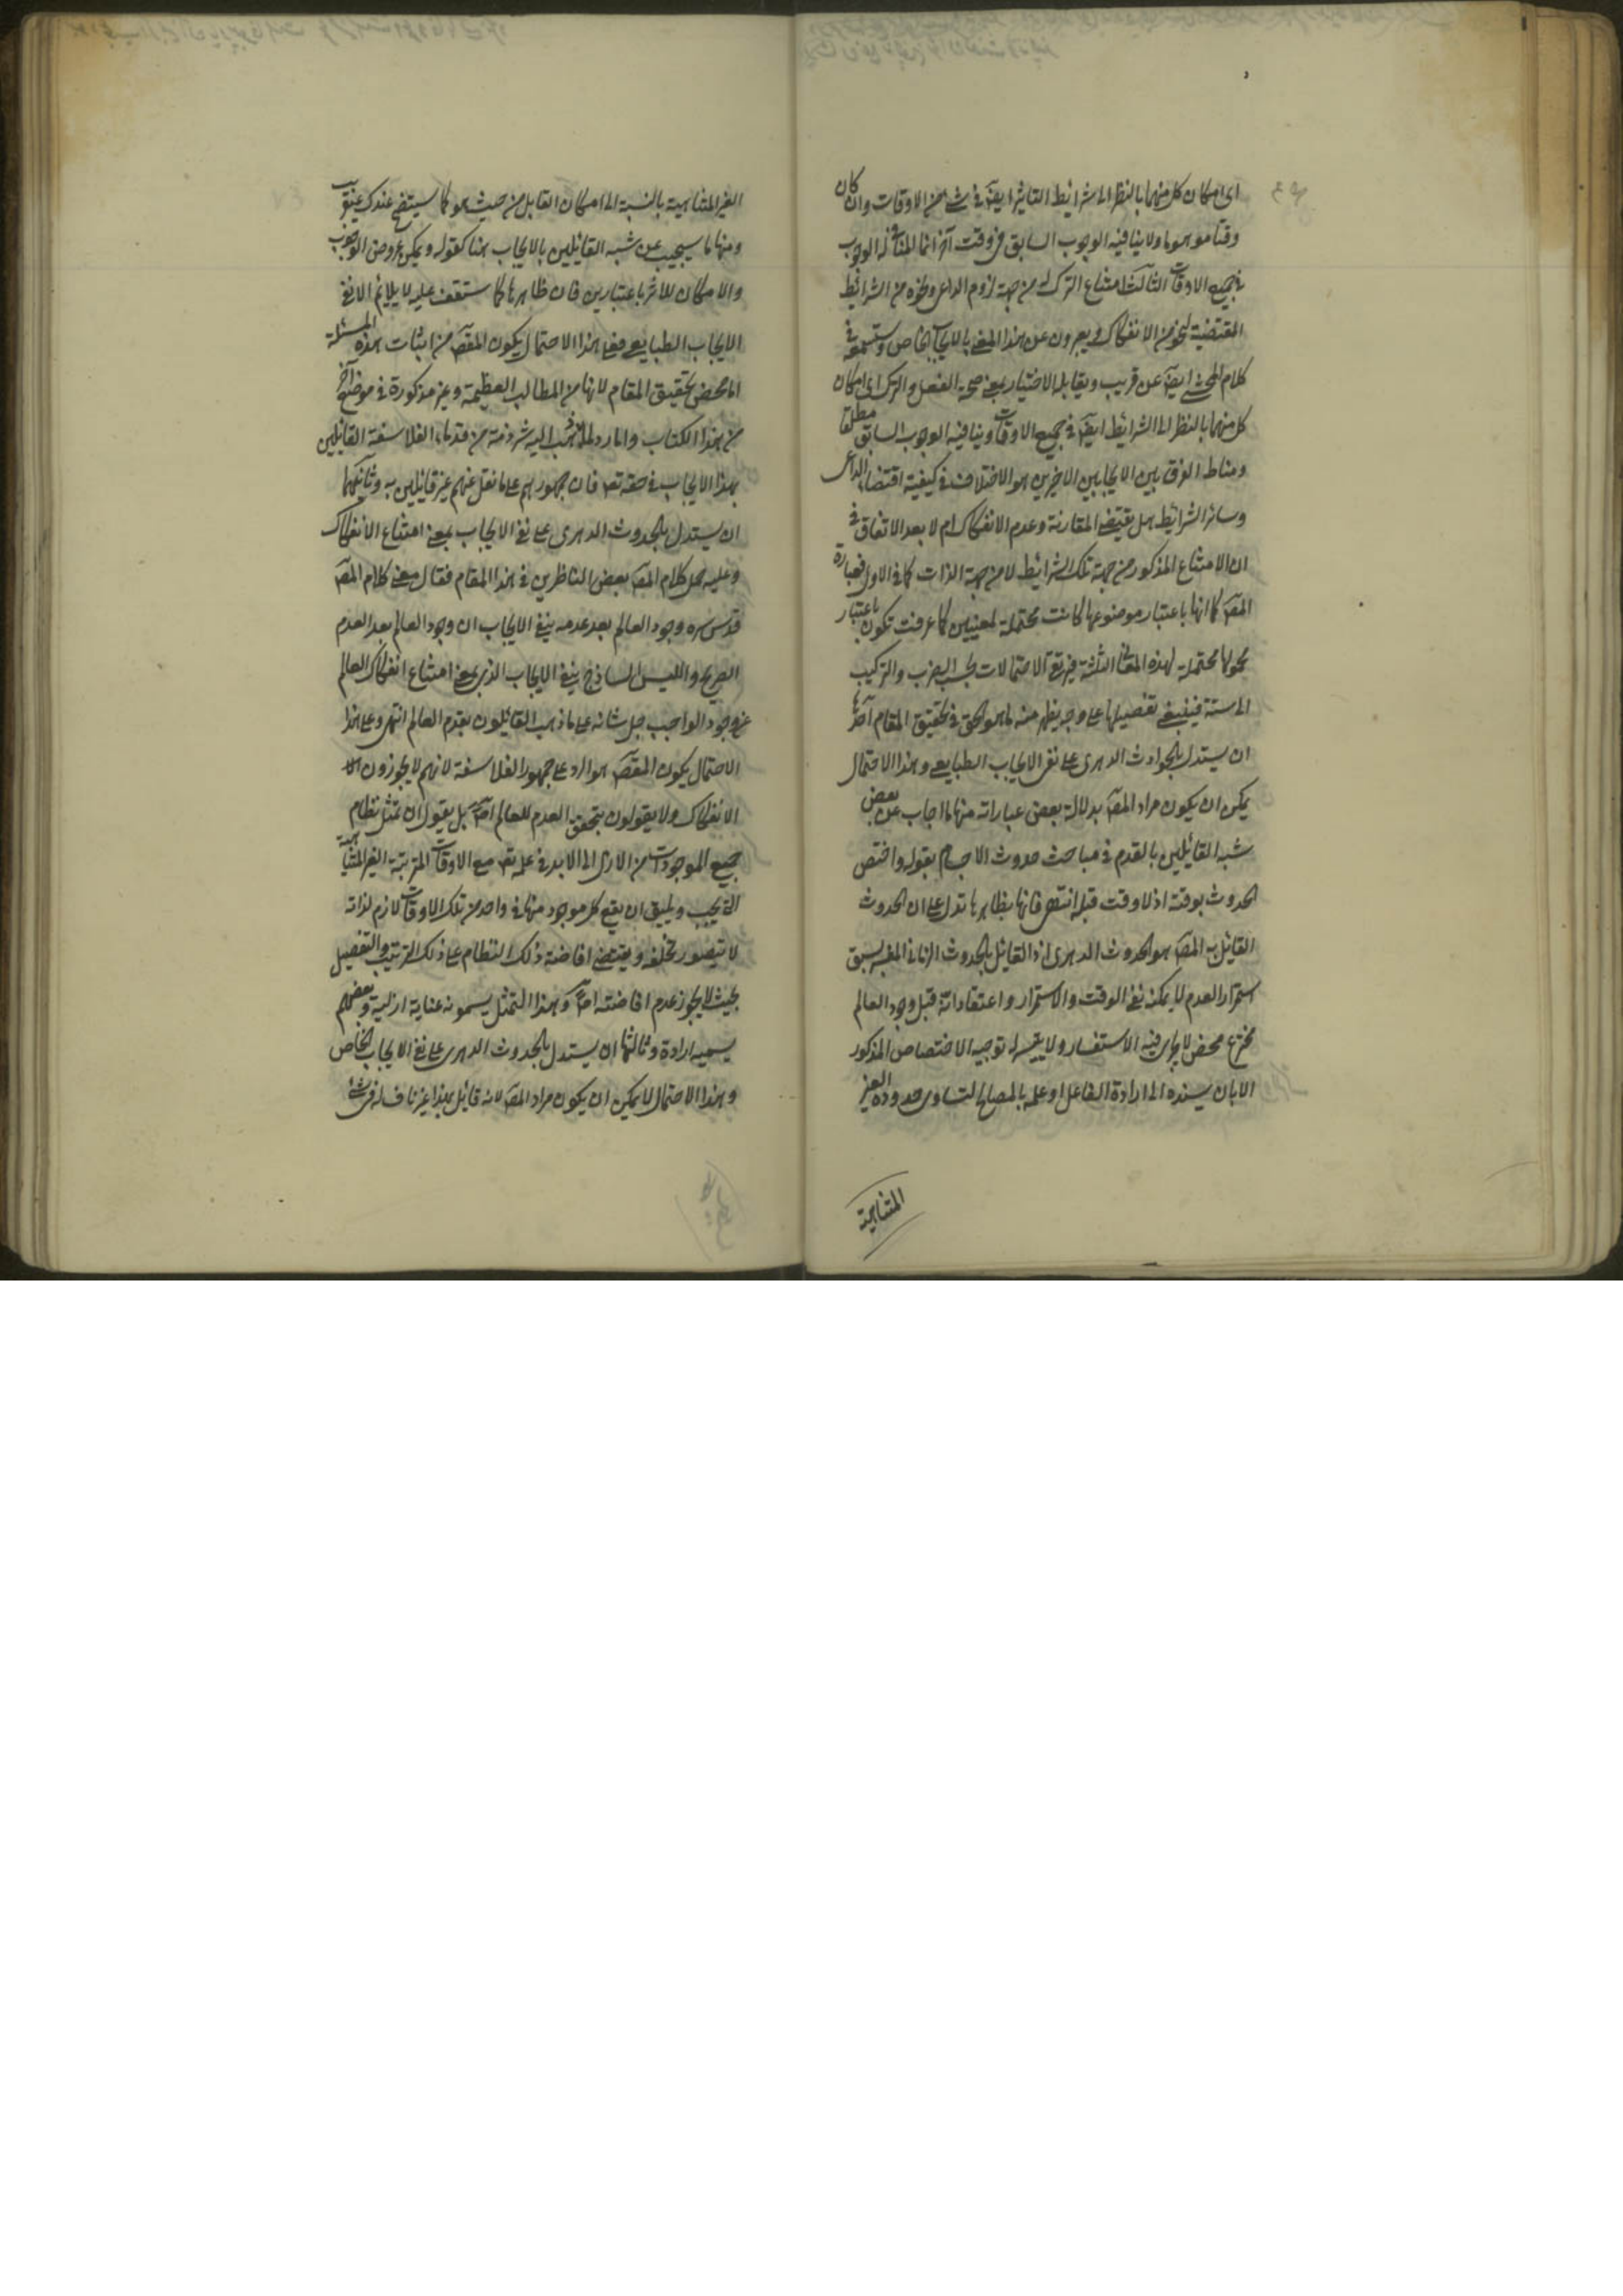 اى امكان كل منهما بالنظر الى شرائط التاثير ايضا فى شئ من الاوقات وان كان
وقتا موهوما ولا ينافيه الوجوب السابق فى وقت آخر انما المنافى له الوجوب
فى جميع الاوقات الثالث امتناع الترك له من جهة لزوم الداعى ونحوه من الشرائط
المقتضية لنحو من الانفكاك ويعبرون عن هذا المعنى بالايجاب الخاص وستسمعه فى
كلام المحشى ايضا عن قريب ويقابله الاختيار بمعنى صحة الفعل والترك اى امكان
كل منهما بالنظر الى الشرائط ايضا فى جميع الاوقات وينافيه الوجوب السابق مطلقا
ومناط الفرق بين الايجابين الاخيرين هو الاختلاف فى كيفية اقتضاء الداعى
وسائر الشرائط هل يقتضى المقارنة وعدم الانفكاك ام لا بعد الاتفاق فى
ان الامتناع المذكور من جهة تلك الشرائط لا من جهة الذات كما فى الاول فعبارة
المصـ كما انها باعتبار موضوعها كانت محتملة لمعنيين كما عرفت تكون باعتبار
محمولها محتملة لهذه المعانى الثلثة فيرتقى الاحتمالات بحسب الضرب والتركيب
الى ستة فينبغى تفصيلها على وجه يظهر منه ما هو الحق فى تحقيق المقام احدها
ان يستدل بالحوادث الدهرى على نفى الايجاب الطبايعى وهذا الاحتمال
يمكن ان يكون مراد المصـ بدلالة بعض عباراته منها ما اجاب عن بعض
شبه القائلين بالقدم فى مباحث حدوث الاجسام بقوله واختص
الحدوث بوقته اذ لا وقت قبله انتهى فانها بظاهرها تدل على ان الحدوث
القائل به المصـ هو الحدوث الدهرى اذ القائل بالحدوث الزمانى المفسر بسبق
استمرار العدم لا يمكنه نفى الوقت والاستمرار واعتقاد انه قبل وجود العالم
مخترع محض لا يجاب فيه الاستفسار ولا يتيسر له توجيه الاختصاص المذكور
الا بان يسنده الى ارادة الفاعل او علمه بالمصالح لتساوى حدوده الغير
المتناهية
الغير المتناهية بالنسبة الى امكان القابل من حيث هو كما سيتضح عندك عنقريب
ومنها ما سيجيب عن شبه القائلين بالايجاب هنا كقوله ويمكن عروض الوجوب
والامكان للاثر باعتبارين فان ظاهرها كما ستقف عليه لا يلائم الا نفى
الايجاب الطبايعى فعلى هذا الاحتمال يكون المقصـ من اثبات هذه المسئلة
اما محض تحقيق المقام لانها من المطالب العظيمة وغير مذكورة فى موضع آخر
من هذا الكتاب واما رد لما ذهب اليه شرذمة من قدماء الفلاسفة القائلين
بهذا الايجاب فى حقه تعـ فان جمهورهم على ما نقل عنهم غير قائلين به وثانيها
ان يستدل بالحدوث الدهرى على نفى الايجاب بمعنى امتناع الانفكاك
وعليه حمل كلام المصـ بعض الناظرين فى هذا المقام فقال معنى كلام المصـ
قدس سره وجود العالم بعد عدمه ينفى الايجاب ان وجود العالم بعد العدم
الصريح والليس الساذج ينفى الايجاب الذى بمعنى امتناع انفكاك العالم
عن وجود الواجب جل شانه على ما ذهب القائلون بقدم العالم انتهى وعلى هذا
الاحتمال يكون المقصـ هو الرد على جمهور الفلاسفة لانهم لا يجوزون
الانفكاك ولا يقولون بتحقق العدم للعالم اصلا بل يقول ان تمثل نظام
جميع الموجودات من الازل الى الابد فى علمه تعـ مع الاوقات المترتبة الغير المتناهية
التى يجب ويليق ان يقع كل موجود منها فى واحد من تلك الاوقات لازم لذاته
لا يتصور تخلفه ويقتضى افاضة ذلك النظام على ذلك الترتيب والتفصيل
بحيث لا يجوز عدم افاضته اصلا وهذا التمثل يسمونه عناية ازلية وبعضهم
يسميه ارادة وثالثها ان يستدل بالحدوث الدهرى على نفى الايجاب الخاص
وهذا الاحتمال لا يمكن ان يكون مراد المصـ لانه قائل بهذا غير ناف له فى شئ